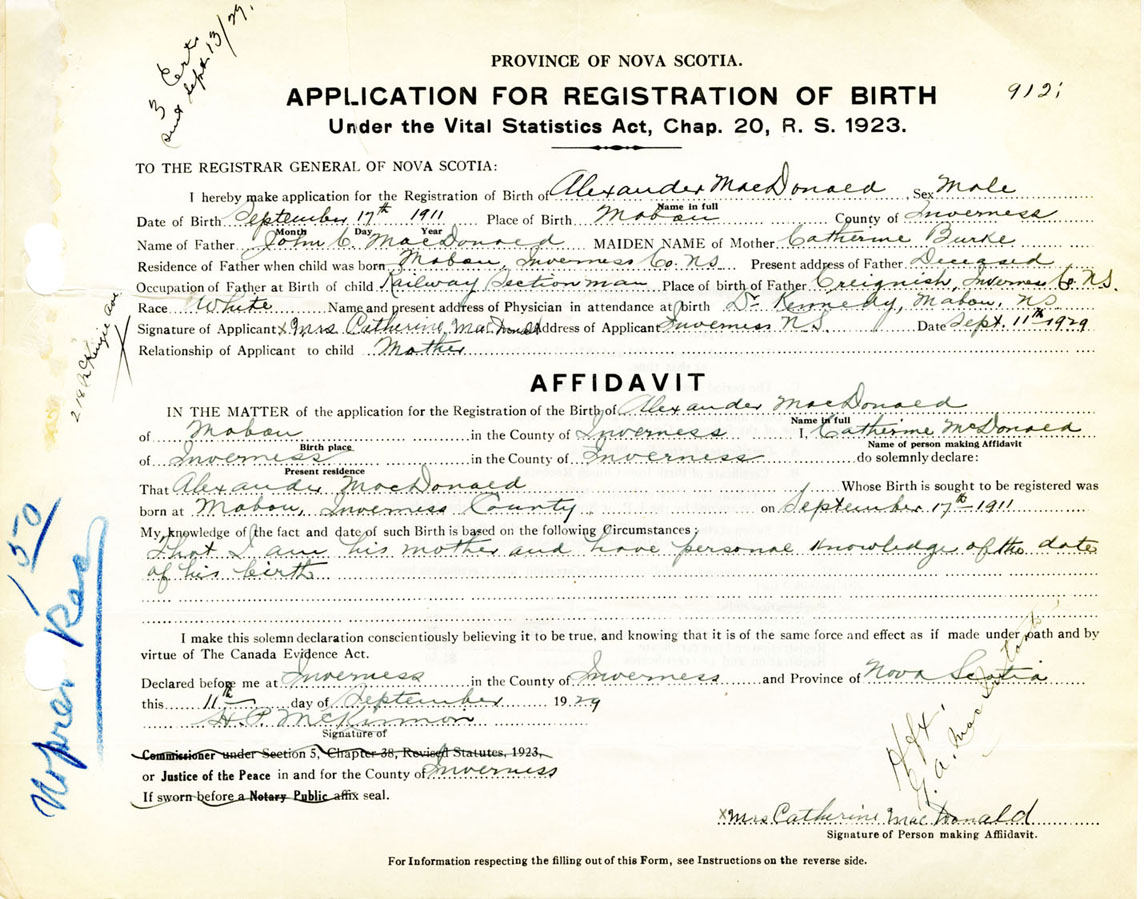 3 Certs
sent Sept. 13/29.
PROVINCE OF NOVA SCOTIA.
APPLICATION FOR REGISTRATION OF BIRTH
912
Under the Vital Statistics Act, Chap. 20, R. S. 1923.
TO THE REGISTRAR GENERAL OF NOVA SCOTIA:
I hereby make application for the Registration of Birth of Alexander MacDonald Sex Male
Name in full
Date of Birth September 17th 1911 Place of Birth Mabou County of Inverness
Month Day Year
Name of Father John C. MacDonald MAIDEN NAME of Mother Catherine Burke
Residence of Father when child was born Mabou, Inverness Co. NS Present address of Father Deceased
Occupation of Father at Birth of child Railway Section man Place of birth of Father Creignish, Inverness Co. N.S.
Race White Name and present address of Physician in attendance at birth Dr. Kennedy, Mabou, NS
Signature of Applicant x Mrs. Catherine MacDonald Address of Applicant Inverness N.S. Date Sept. 11th 1929
Relationship of Applicant to child Mother
AFFIDAVIT
IN THE MATTER of the application for the Registration of the Birth of Alexander MacDonald
Name in full
of Mabou in the County of Inverness I, Catherine McDonald
Birth place Name of person making Affidavit
of Inverness in the County of Inverness do solemnly declare:
Present residence
That Alexander MacDonald Whose Birth is sought to be registered was
born at Mabou, Inverness County on September 17th 1911
My knowledge of the fact and date of such Birth is based on the following Circumstances:
That I am his mother and have personal knowledge of the date
of his birth
I make this solemn declaration conscientiously believing it to be true, and knowing that it is of the same force and effect as if made under oath and by
virtue of The Canada Evidence Act.
Declared before me at Inverness in the County of Inverness and Province of Nova Scotia
this 11th day of September 1929
H. P. McKinnon
Signature of
Commissioner under Section 5, Chapter 38, Revised Statutes, 1923,
or Justice of the Peace in and for the County of Inverness
If sworn before a Notary Public affix seal.
x Mrs Catherine MacDonald
Signature of Person making Affidavit.
For Information respecting the filling out of this Form, see Instructions on the reverse side.
1 50